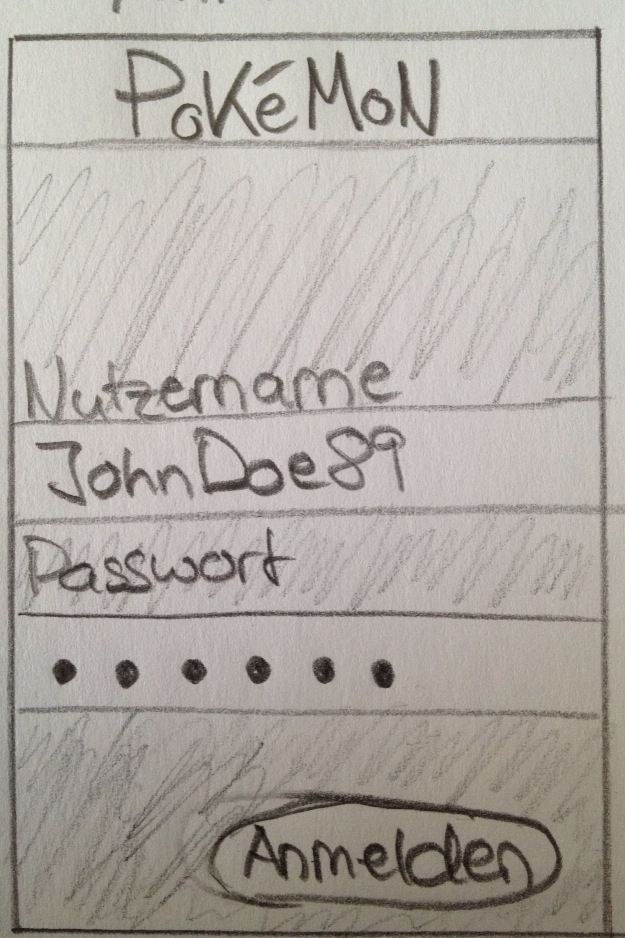 PoKéMoN
Nutzername
JohnDoe89
Passwort
••••••
Anmelden